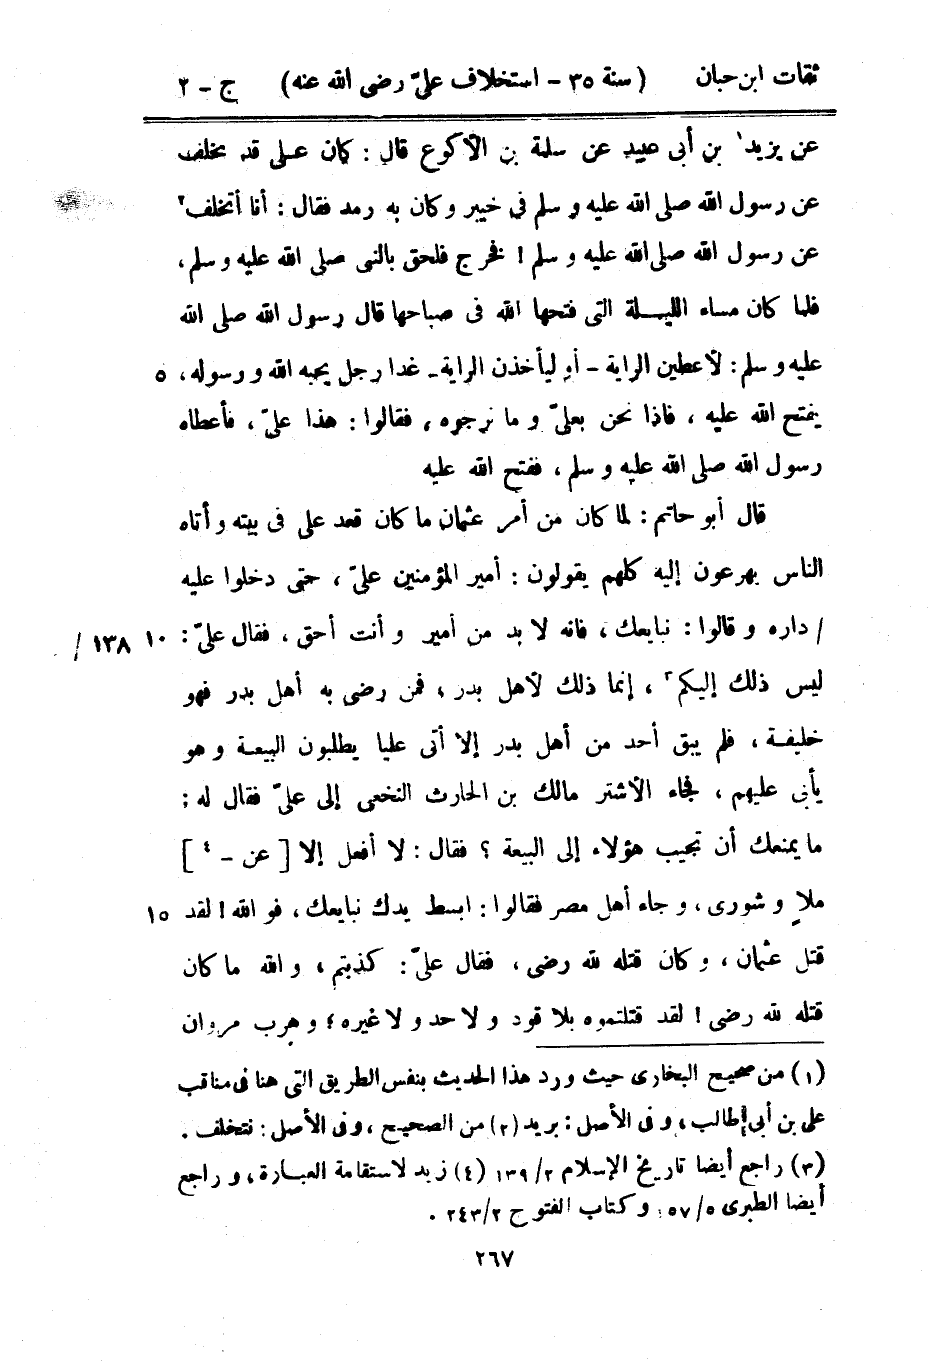 ثقات ابن حبان (سنة ٣٥ – استخلاف علىّ رضى الله عنه) ج – ٢
عن يزيد١ بن أبى عبيد عن سلمة بن الأكوع قال : كان على قد تخلف
عن رسول الله صلى الله عليه و سلم فى خيبر وكان به رمد فقال : أنا أتخلف٢
عن رسول الله صلى الله عليه و سلم ! فخرج فلحق بالنبى صلى الله عليه و سلم ،
فلما كان مساء الليلة التى فتحها الله فى صباحها قال رسول الله صلى الله
عليه و سلم : لأعطين الراية – أو ليأخذن الراية – غدا رجل يحبه الله و رسوله ، ٥
يفتح الله عليه ، فاذا نحن بعلىّ و ما نرجوه ، فقالوا : هذا علىّ ، فأعطاه
رسول الله صلى الله عليه و سلم ، ففتح الله عليه
قال أبو حاتم : لما كان من أمر عثمان ما كان قعد على فى بيته و أتاه
الناس يهرعون إليه كلهم يقولون : أمير المؤمنين علىّ ، حتى دخلوا عليه
/ داره و قالوا : نبايعك ، فانه لا بد من أمير و أنت أحق ، فقال علىّ : ١٠ ١٣٨ /
ليس ذلك إليكم٣ ، إنما ذلك لأهل بدر ، فمن رضى به أهل بدر فهو
خليفة ، فلم يبق أحد من أهل بدر إلا أتى عليا يطلبون البيعة و هو
يأبى عليهم ، فجاء الأشتر مالك بن الحارث النخعى إلى علىّ فقال له :
ما يمنعك أن تجيب هؤلاء إلى البيعة ؟ فقال : لا أفعل إلا [ عن – ٤ ]
ملإ و شورى ، و جاء أهل مصر فقالوا : ابسط يدك نبايعك ، فو الله ! لقد ١٥
قتل عثمان ، و كان قتله لله رضى ، فقال علىّ : كذبتم ، و الله ما كان
قتله لله رضى ! لقد قتلتموه بلا قود و لا حد و لا غيره ؛ و هرب مروان
(١) من صحيح البخارى حيث ورد هذا الحديث بنفس الطريق التى هنا فى مناقب
على بن أبى طالب ، و فى الأصل : بريد (٢) من الصحيح ، و فى الأصل : نتخلف .
(٣) راجع أيضا تاريخ الإسلام ٢/ ١٣٩ (٤) زيد لاستقامة العبارة ، و راجع
أيضا الطبرى ٥/ ٥٧ ، و كتاب الفتوح ٢/ ٢٤٣ .
٢٦٧